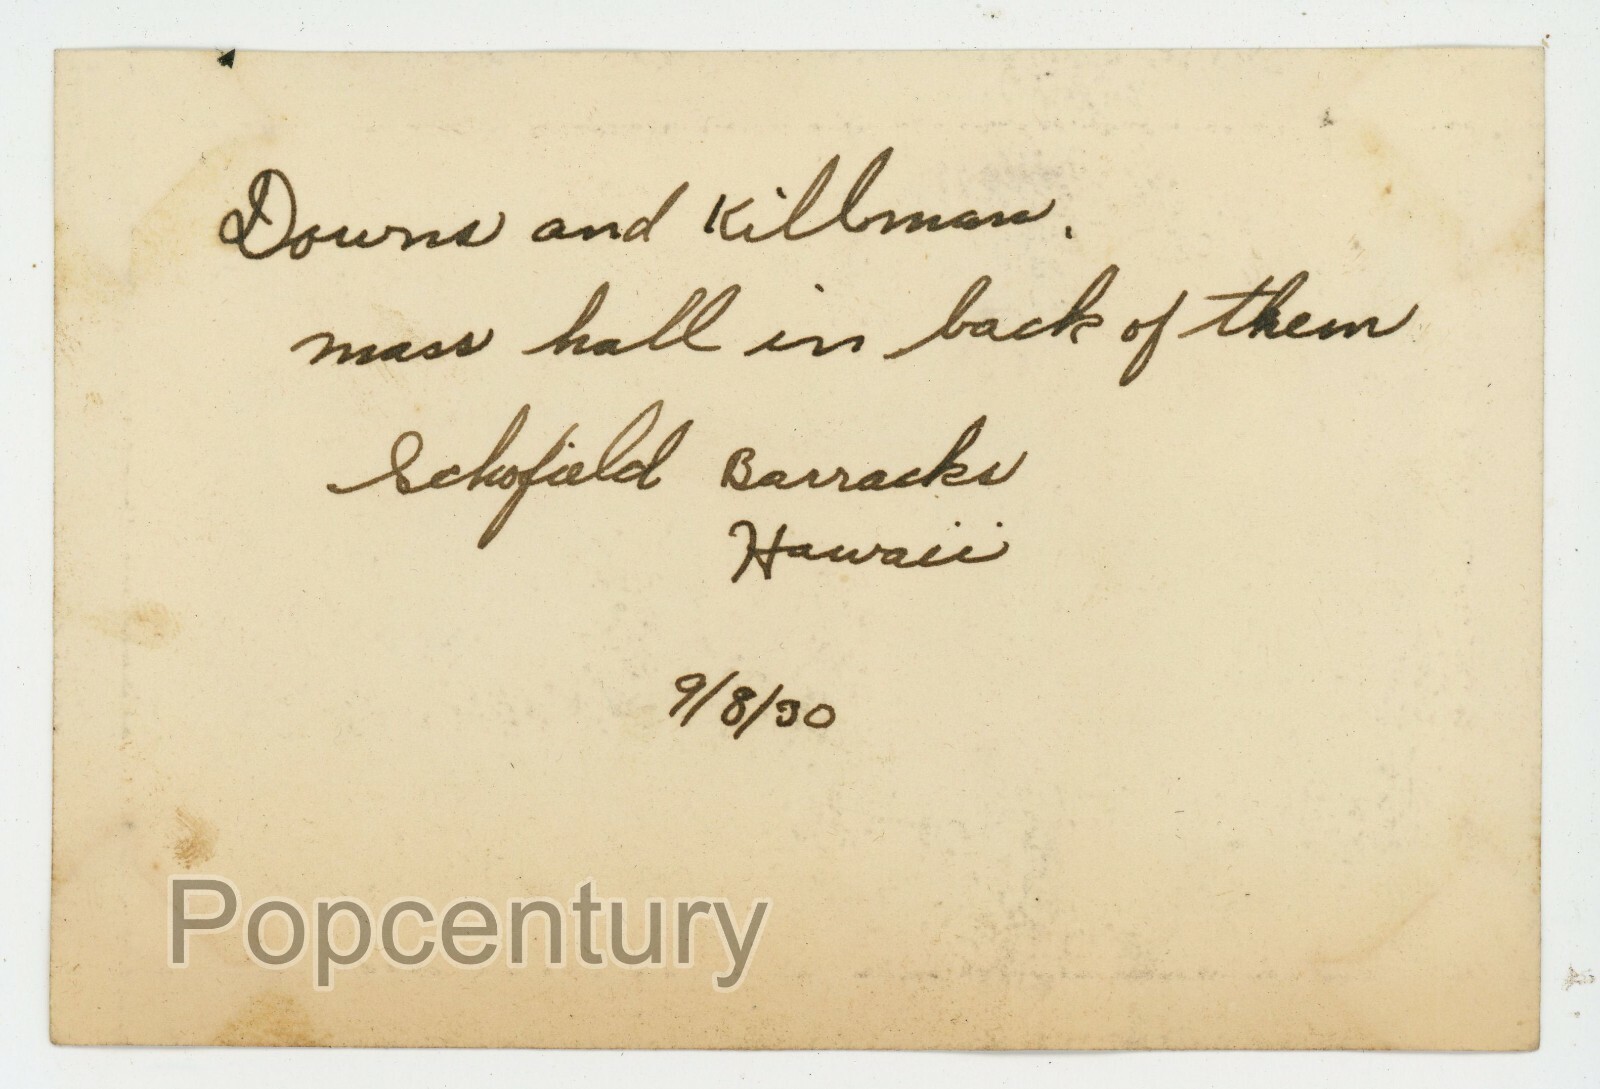 Downs and Killman.
mass hall in back of them
Schofield Barracks
Hawaii
9/8/30
Popcentury